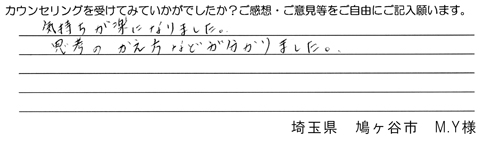 カウンセリングを受けてみていかがでしたか？ご感想・ご意見等をご自由にご記入願います。
気持ちが楽になりました。
思考のかえ方などが分かりました。
埼玉県 鳩ヶ谷市 M.Y様